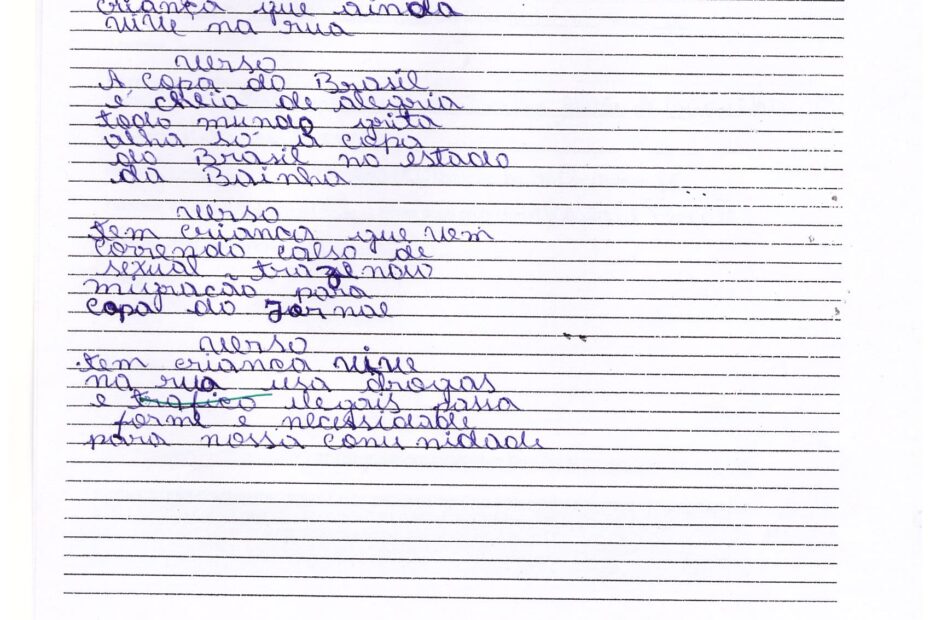 criança que ainda
vive na rua
verso
A copa do Brasil
é cheia de alegria
todo mundo grita
olha só a copa
do Brasil no estado
da Bainha
verso
tem criança que vem
correndo calso de
sexual trazendo
migração para
copa do Jornal
verso
tem criança vive
na rua usa drogas
e trafico ilegais passa
forme e necessidable
para nossa conu nidade